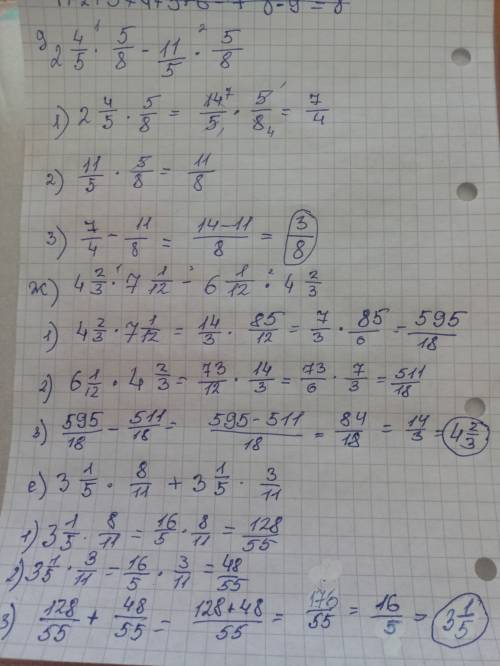 д) 2 4/5 · 5/8 - 11/5 · 5/8
1) 2 4/5 · 5/8 = 14/5 · 5/8 = 7/4
2) 11/5 · 5/8 = 11/8
3) 7/4 - 11/8 = 14-11/8 = 3/8
ж) 4 2/3 · 7 1/12 - 6 1/12 · 4 2/3
1) 4 2/3 · 7 1/12 = 14/3 · 85/12 = 7/3 · 85/6 = 595/18
2) 6 1/12 · 4 2/3 = 73/12 · 14/3 = 73/6 · 7/3 = 511/18
3) 595/18 - 511/18 = 595-511/18 = 84/18 = 14/3 = 4 2/3
е) 3 1/5 · 8/11 + 3 1/5 · 3/11
1) 3 1/5 · 8/11 = 16/5 · 8/11 = 128/55
2) 3 1/5 · 3/11 = 16/5 · 3/11 = 48/55
3) 128/55 + 48/55 = 128+48/55 = 176/55 = 16/5 = 3 1/5